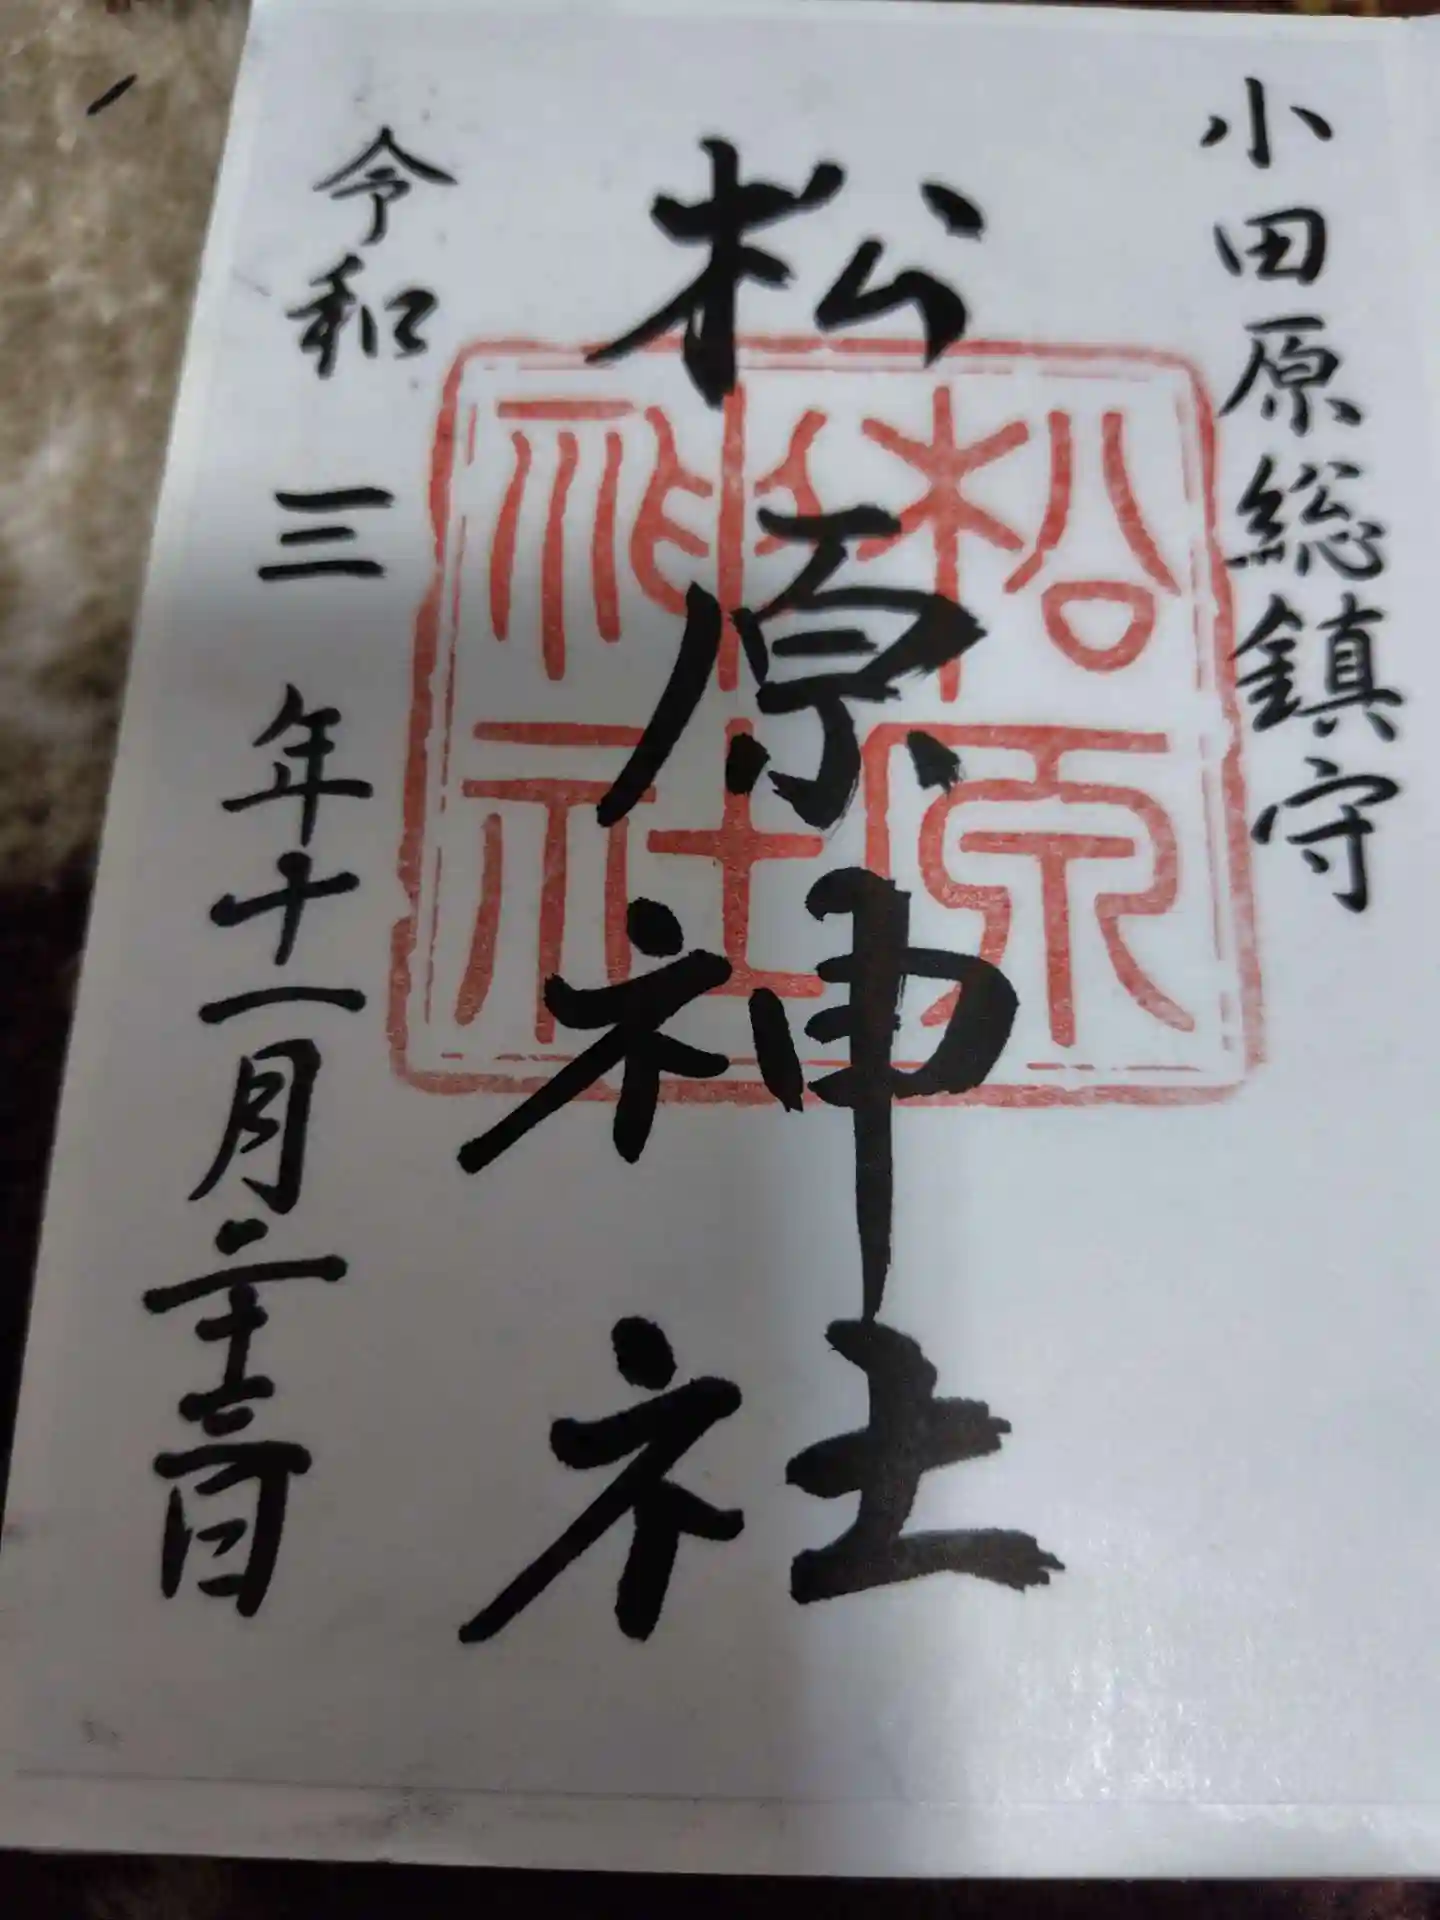 小田原総鎮守
松原神社
松原神社
令和三年十一月二十三日